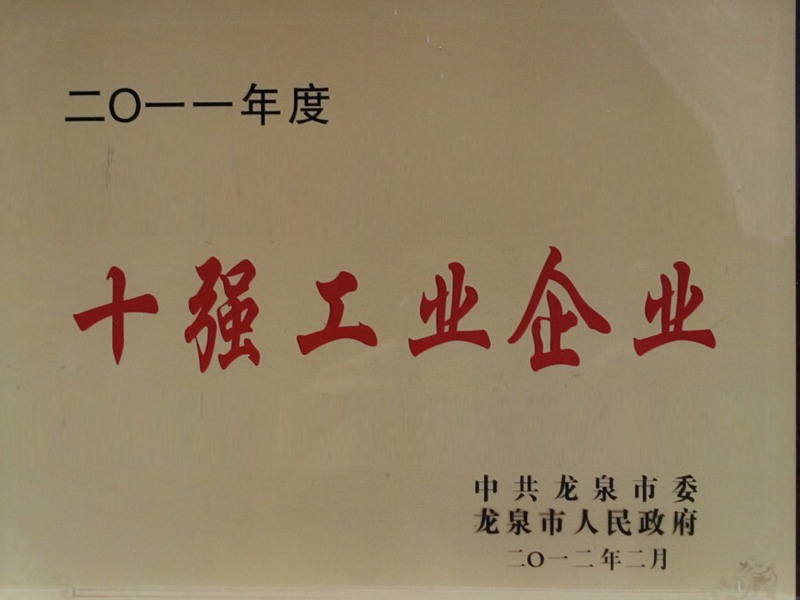 二〇一一年度
十强工业企业
中共龙泉市委
龙泉市人民政府
二〇一二年二月